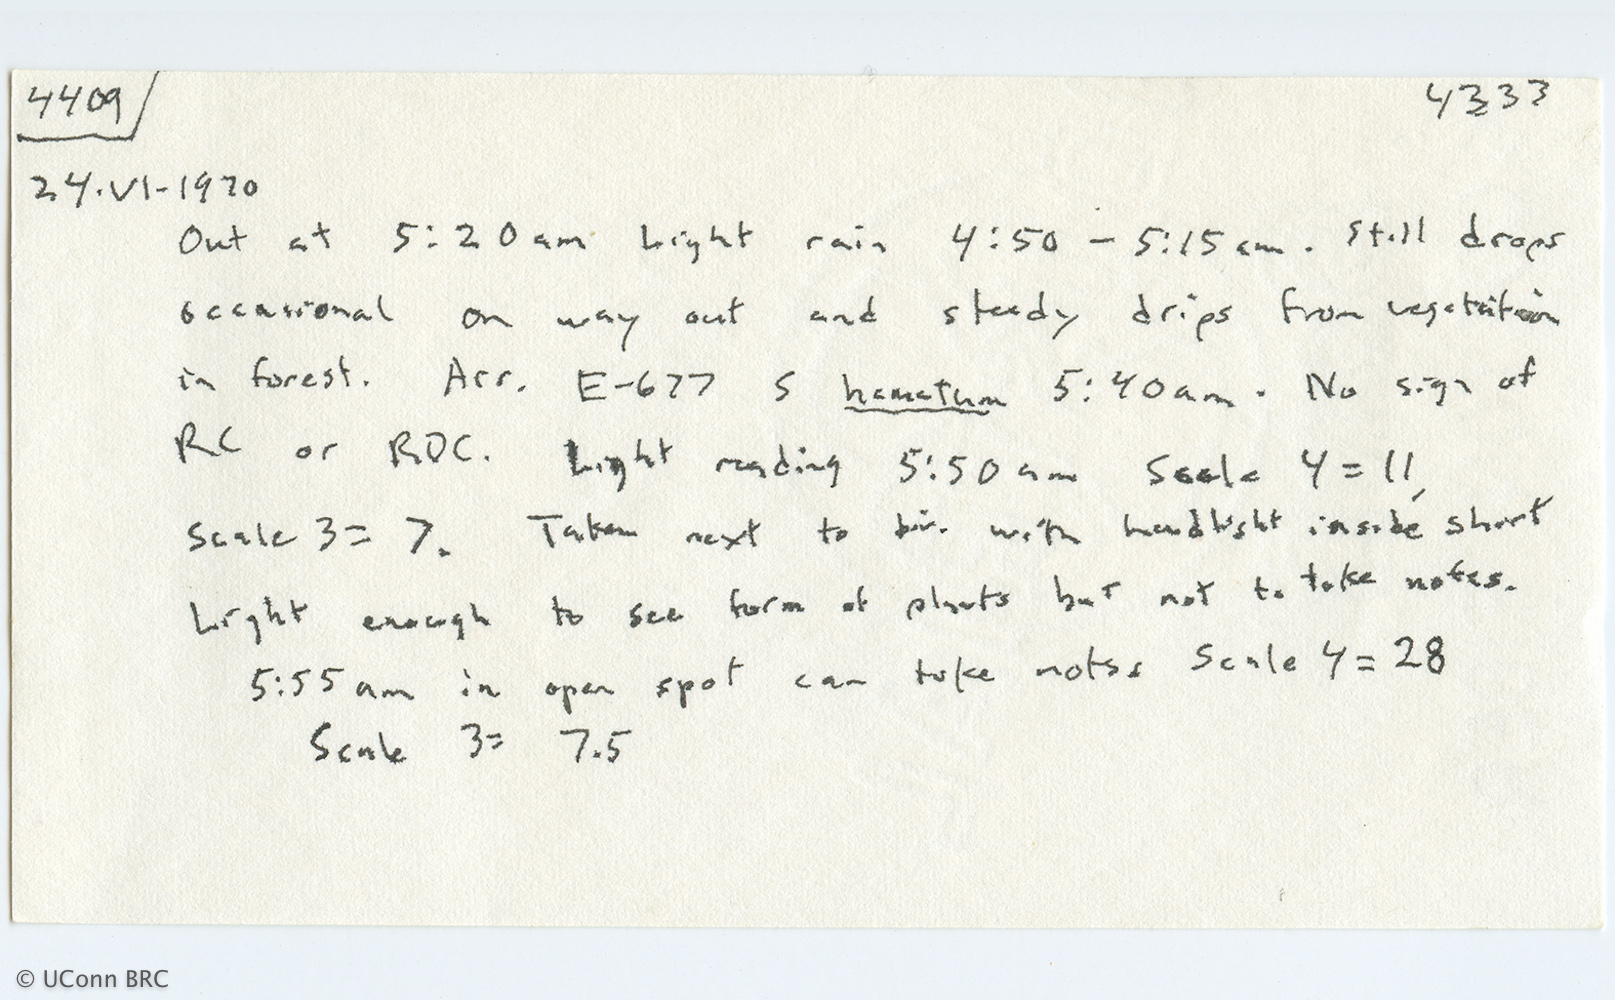 4409 4333
24.VI-1970
Out at 5:20am Light rain 4:50 - 5:15am. Still drops
occasional on way out and steady drips from vegetation
in forest. Arr. E-677 S hamatum 5:40am. No sign of
RC or RDC. Light reading 5:50am Scale 4=11,
Scale 3=7. Taken next to biv. with headlight inside shirt
Light enough to see form of plants but not to take notes.
5:55am in open spot can take notes Scale 4=28
Scale 3= 7.5
© UConn BRC